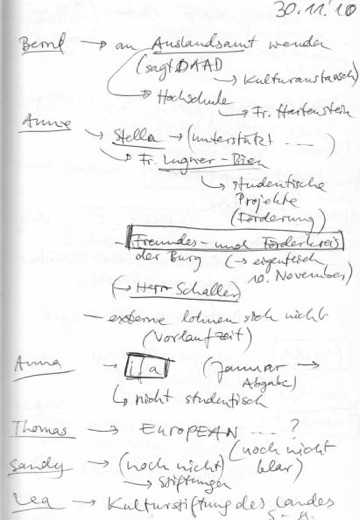 30.11.'10
Bernd → an Auslandsamt wenden
(sagt DAAD
→ Kulturaustausch)
→ Hochschule
↳ Fr. Hartenstein
Anne → Stella → (unterstützt ....)
↳ Fr. Lugner-Bien
↳ studentische
Projekte
(Förderung)
- Freundes- und Förderkreis
der Burg (→ eigentlich
10. November)
(→ Herr Schaller)
— externe lohnen sich nicht
(Vorlaufzeit)
Anna → ifa (Januar →
Abgabe)
↳ nicht studentisch
Thomas → EUROPEAN ... ?
(noch nicht
Sandy → (noch nicht) klar)
→ Stiftungen
Lea → Kulturstiftung des Landes